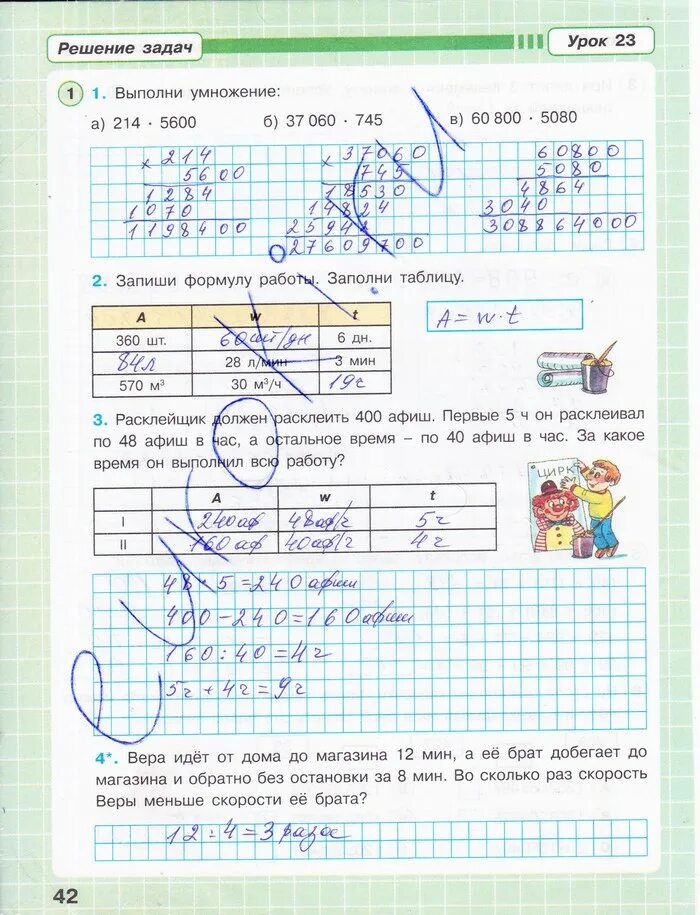 Решение задач
Урок 23
1 1. Выполни умножение:
а) 214 · 5600 б) 37 060 · 745 в) 60 800 · 5080
× 214 × 37060 60800
5600 745 5080
1284 18530 4864
1070 14824 3040
1198400 25942 308864000
27609700
2. Запиши формулу работы. Заполни таблицу.
A w t
360 шт. 60 шт/дн 6 дн.
84 л 28 л/мин 3 мин
570 м³ 30 м³/ч 19 ч
A = w · t
3. Расклейщик должен расклеить 400 афиш. Первые 5 ч он расклеивал
по 48 афиш в час, а остальное время – по 40 афиш в час. За какое
время он выполнил всю работу?
ЦИРК
A w t
I 240 аф 48 аф/ч 5 ч
II 160 аф 40 аф/ч 4 ч
48 · 5 = 240 афиш
400 – 240 = 160 афиш
160 : 40 = 4 ч
5 ч + 4 ч = 9 ч
4*. Вера идёт от дома до магазина 12 мин, а её брат добегает до
магазина и обратно без остановки за 8 мин. Во сколько раз скорость
Веры меньше скорости её брата?
12 : 4 = 3 раза
42